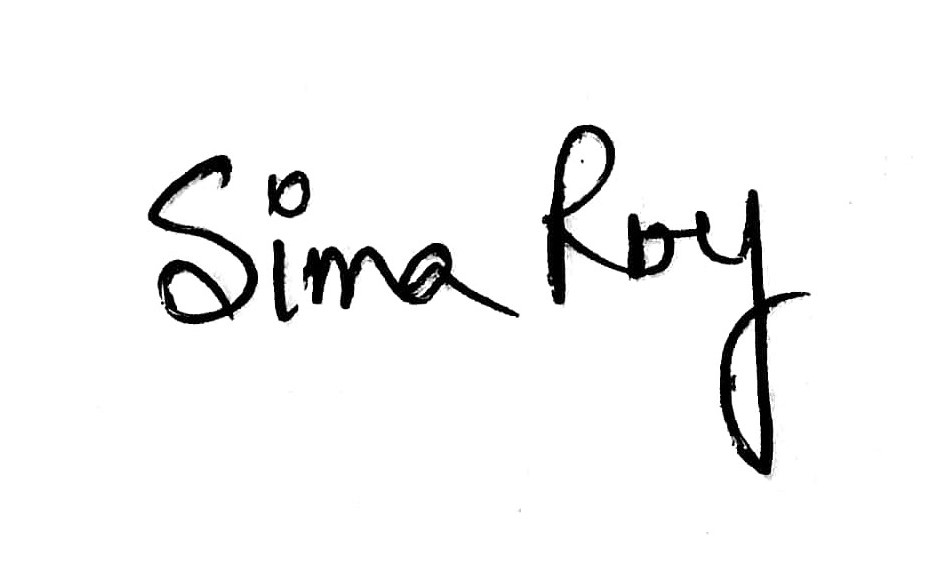 Sima Roy